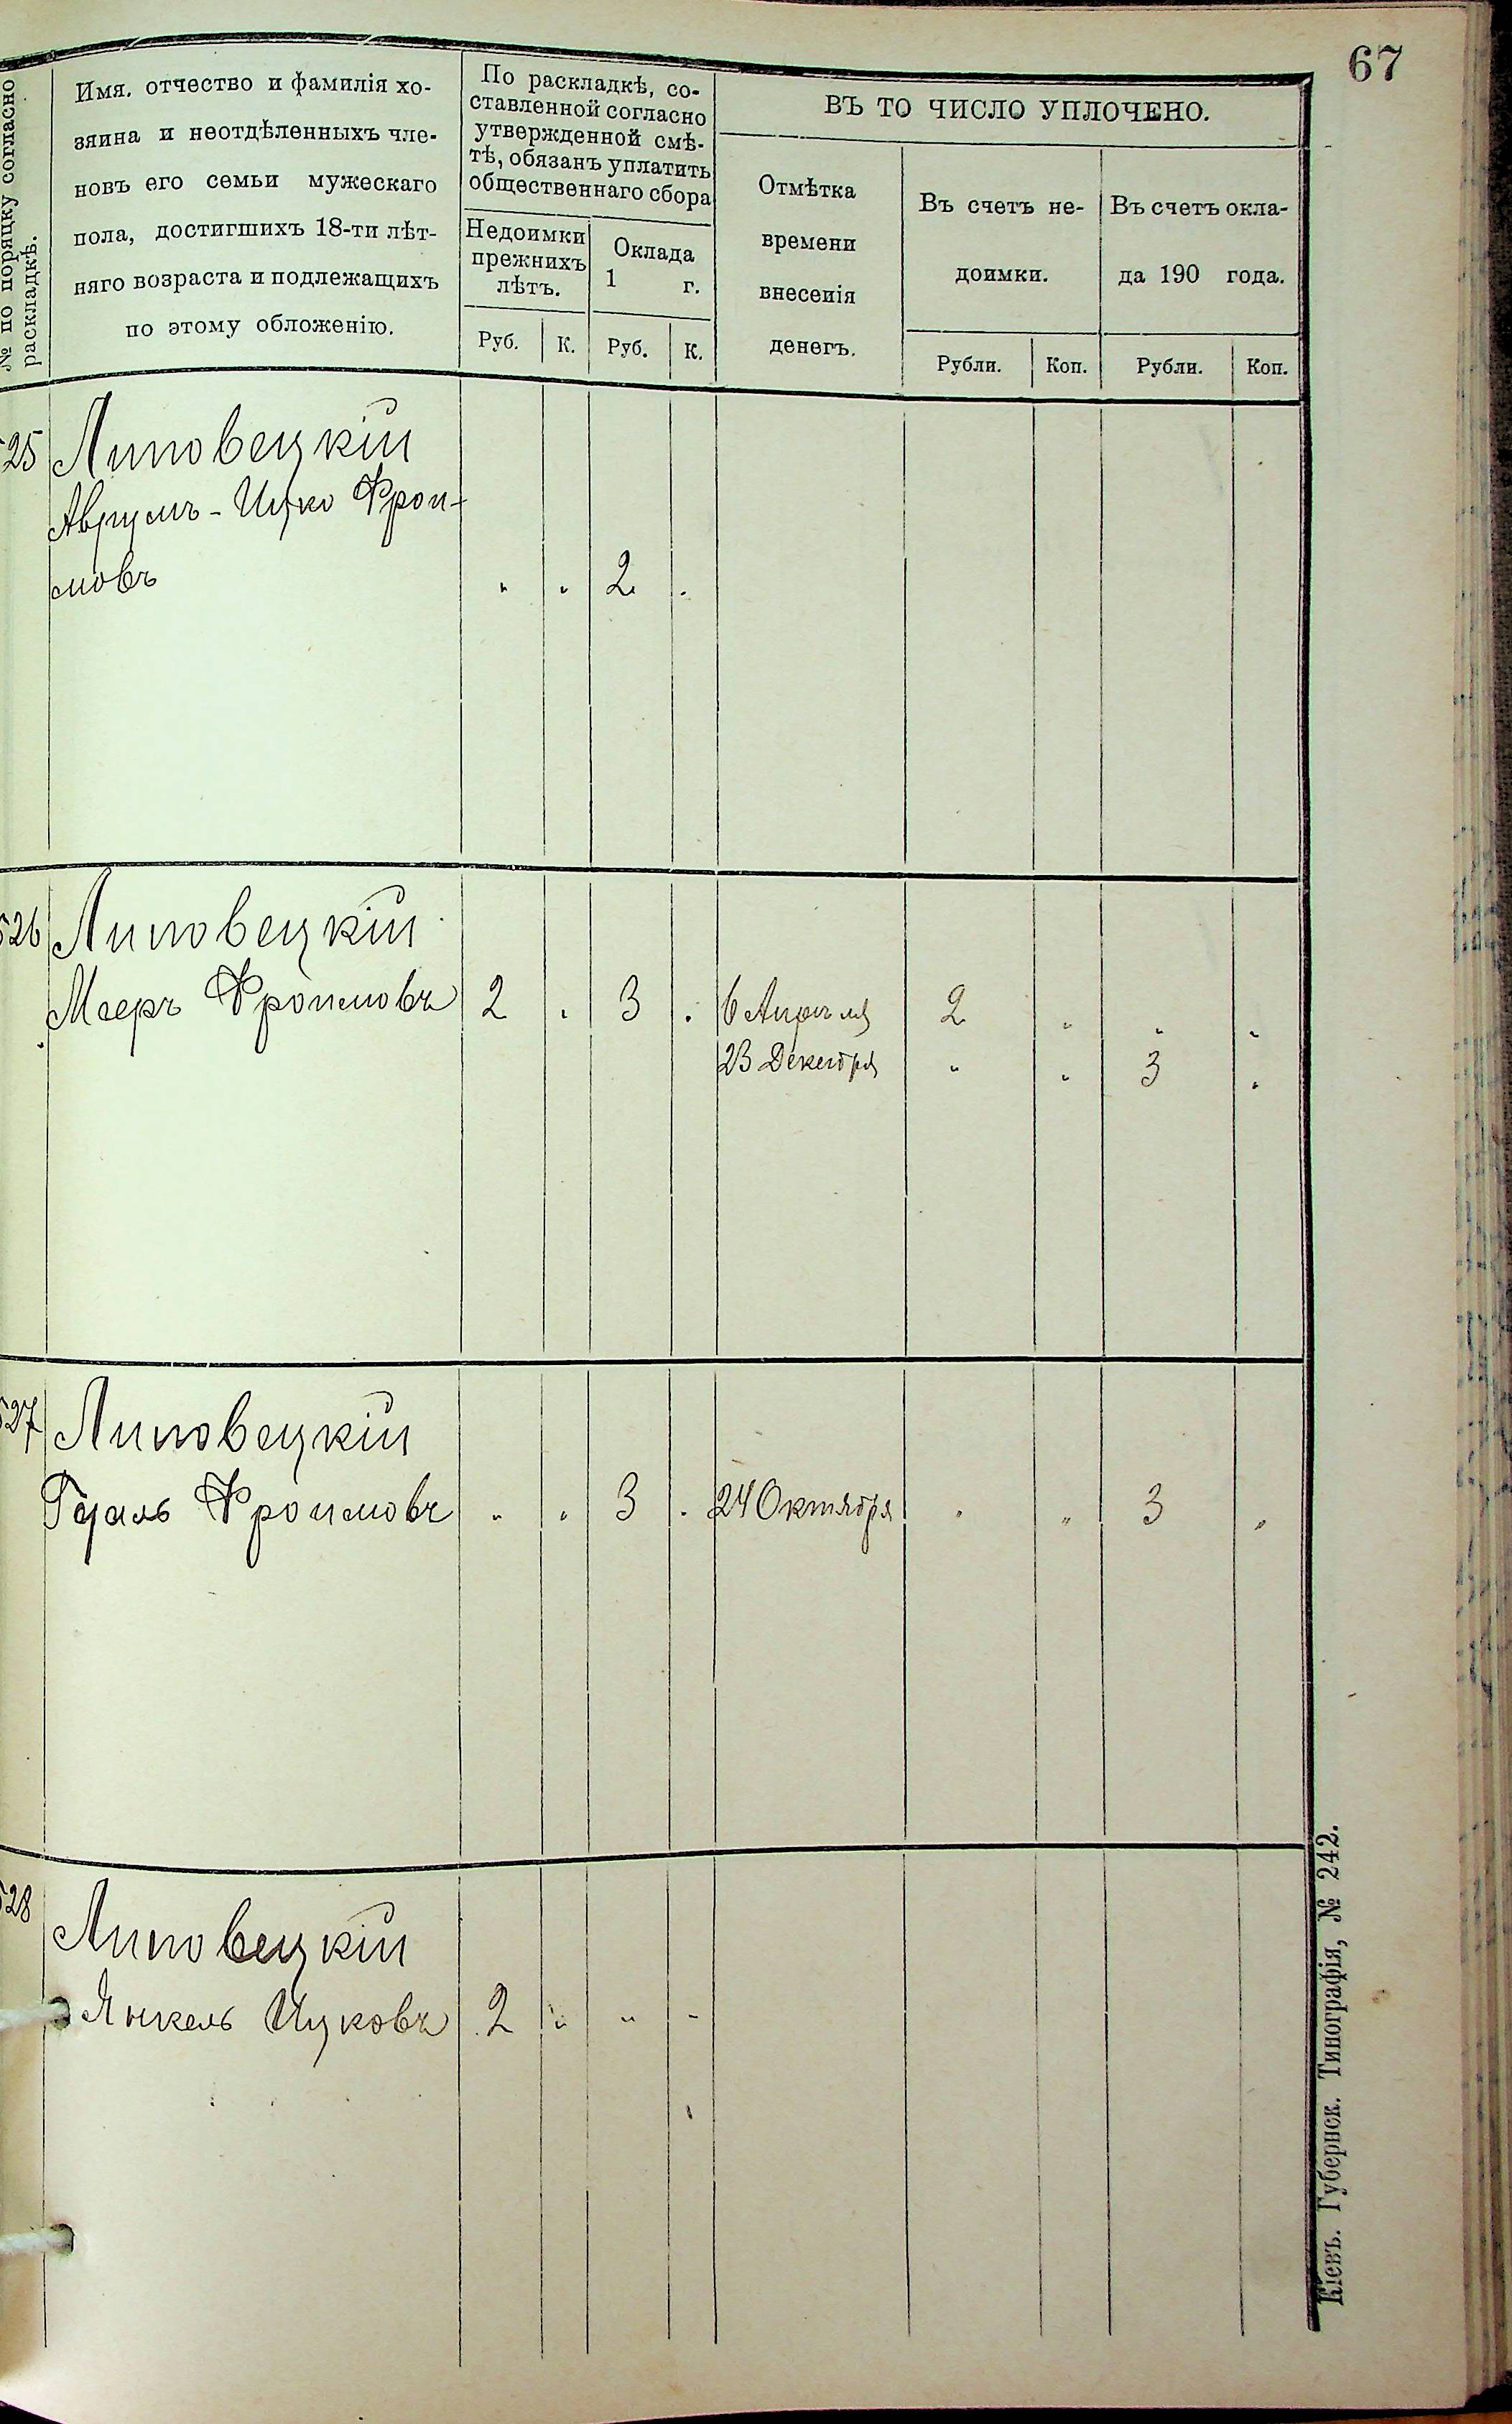 67
№ по порядку согласно
раскладкѣ.
Имя. отчество и фамилія хо-
зяина и неотдѣленныхъ чле-
новъ его семьи мужескаго
пола, достигшихъ 18-ти лѣт-
няго возраста и подлежащихъ
по этому обложенію.
По раскладкѣ, со-
ставленной согласно
утвержденной смѣ-
тѣ, обязанъ уплатить
общественнаго сбора
Недоимки
прежнихъ
лѣтъ.
Оклада
1 г.
Руб. К. Руб. К.
ВЪ ТО ЧИСЛО УПЛОЧЕНО.
Отмѣтка
времени
внесенія
денегъ.
Въ счетъ не-
доимки.
Въ счетъ окла-
да 190 года.
Рубли. Коп. Рубли. Коп.
525 Липовецкій
Аврумъ-Ицко Фрои-
мовъ " " 2 "
526 Липовецкій
Мееръ Фроимовъ 2 " 3 " 6 Апрѣля 2 " " "
23 Декабря " " 3 "
527 Липовецкій
Гдаль Фроимовъ " " 3 " 24 Октября " " 3 "
528 Липовецкій
Янкель Ицковъ 2 " " "
Кіевъ. Губернск. Типографія, № 242.